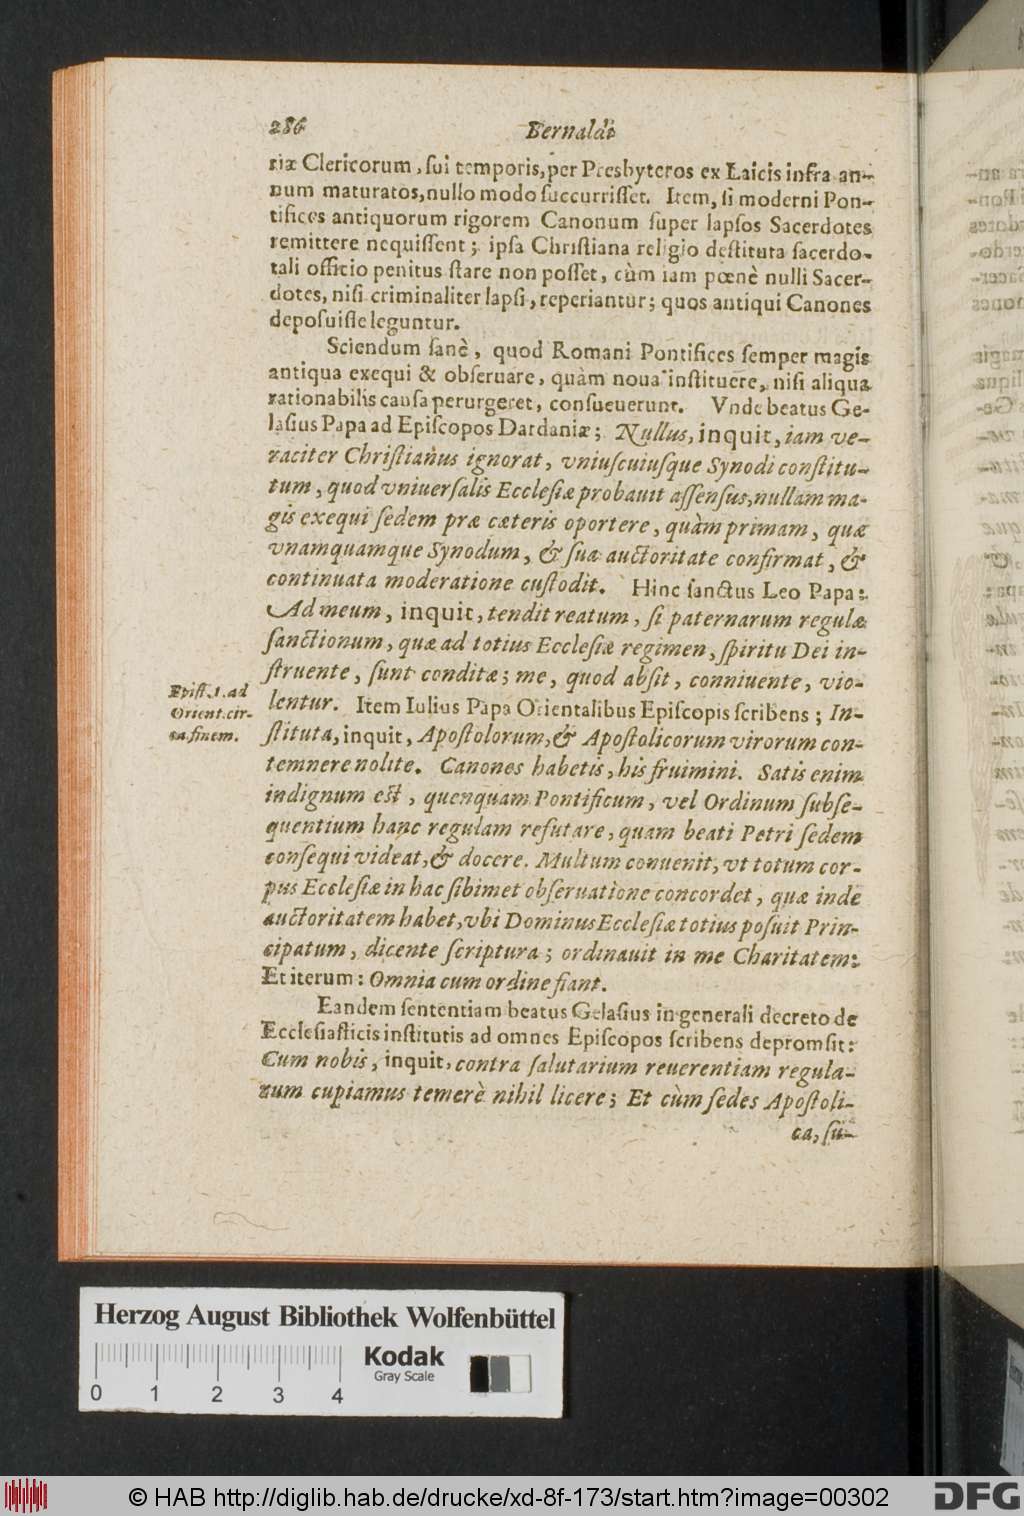 286 Bernaldi
riæ Clericorum, ſui temporis, per Presbyteros ex Laicis infra an-
num maturatos, nullo modo ſuccurriſſet. Item, ſi moderni Pon-
tifices antiquorum rigorem Canonum ſuper lapſos Sacerdotes
remittere nequiſſent; ipſa Chriſtiana religio deſtituta ſacerdo-
tali officio penitus ſtare non poſſet, cùm iam pœnè nulli Sacer-
dotes, niſi criminaliter lapſi, reperiantur; quos antiqui Canones
depoſuiſſe leguntur.
Sciendum ſanè, quod Romani Pontifices ſemper magis
antiqua exequi & obſeruare, quàm noua inſtituere, niſi aliqua
rationabilis cauſa perurgeret, conſueuerunt. Vnde beatus Ge-
laſius Papa ad Epiſcopos Dardaniæ; Nullus, inquit, iam ve-
raciter Chriſtianus ignorat, vniuſcuiuſque Synodi conſtitu-
tum, quod vniuerſalis Eccleſiæ probauit aſſenſus, nullam ma-
gis exequi ſedem præ cæteris oportere, quàm primam, quæ
vnamquamque Synodum, & ſua auctoritate confirmat, &
continuata moderatione cuſtodit. Hinc ſanctus Leo Papa:
Ad meum, inquit, tendit reatum, ſi paternarum regulæ
ſanctionum, quæ ad totius Eccleſiæ regimen, ſpiritu Dei in-
ſtruente, ſunt conditæ; me, quod abſit, conniuente, vio-
lentur. Item Iulius Papa Orientalibus Epiſcopis ſcribens; In-
ſtituta, inquit, Apoſtolorum, & Apoſtolicorum virorum con-
temnere nolite. Canones habetis, his fruimini. Satis enim
indignum eſt, quenquam Pontificum, vel Ordinum ſubſe-
quentium hanc regulam refutare, quam beati Petri ſedem
conſequi videat, & docere. Multum conuenit, vt totum cor-
pus Eccleſiæ in hac ſibimet obſeruatione concordet, quæ inde
auctoritatem habet, vbi Dominus Eccleſiæ totius poſuit Prin-
cipatum, dicente ſcriptura; ordinauit in me Charitatem:
Et iterum: Omnia cum ordine fiant.
Eandem ſententiam beatus Gelaſius in generali decreto de
Eccleſiaſticis inſtitutis ad omnes Epiſcopos ſcribens depromſit:
Cum nobis, inquit, contra ſalutarium reuerentiam regula-
rum cupiamus temerè nihil licere; Et cùm ſedes Apoſtoli-
ca, ſu-
Epiſt. 1. ad
Orient. cir-
ca finem.
Herzog August Bibliothek Wolfenbüttel
Kodak
Gray Scale
0 1 2 3 4
© HAB http://diglib.hab.de/drucke/xd-8f-173/start.htm?image=00302
DFG